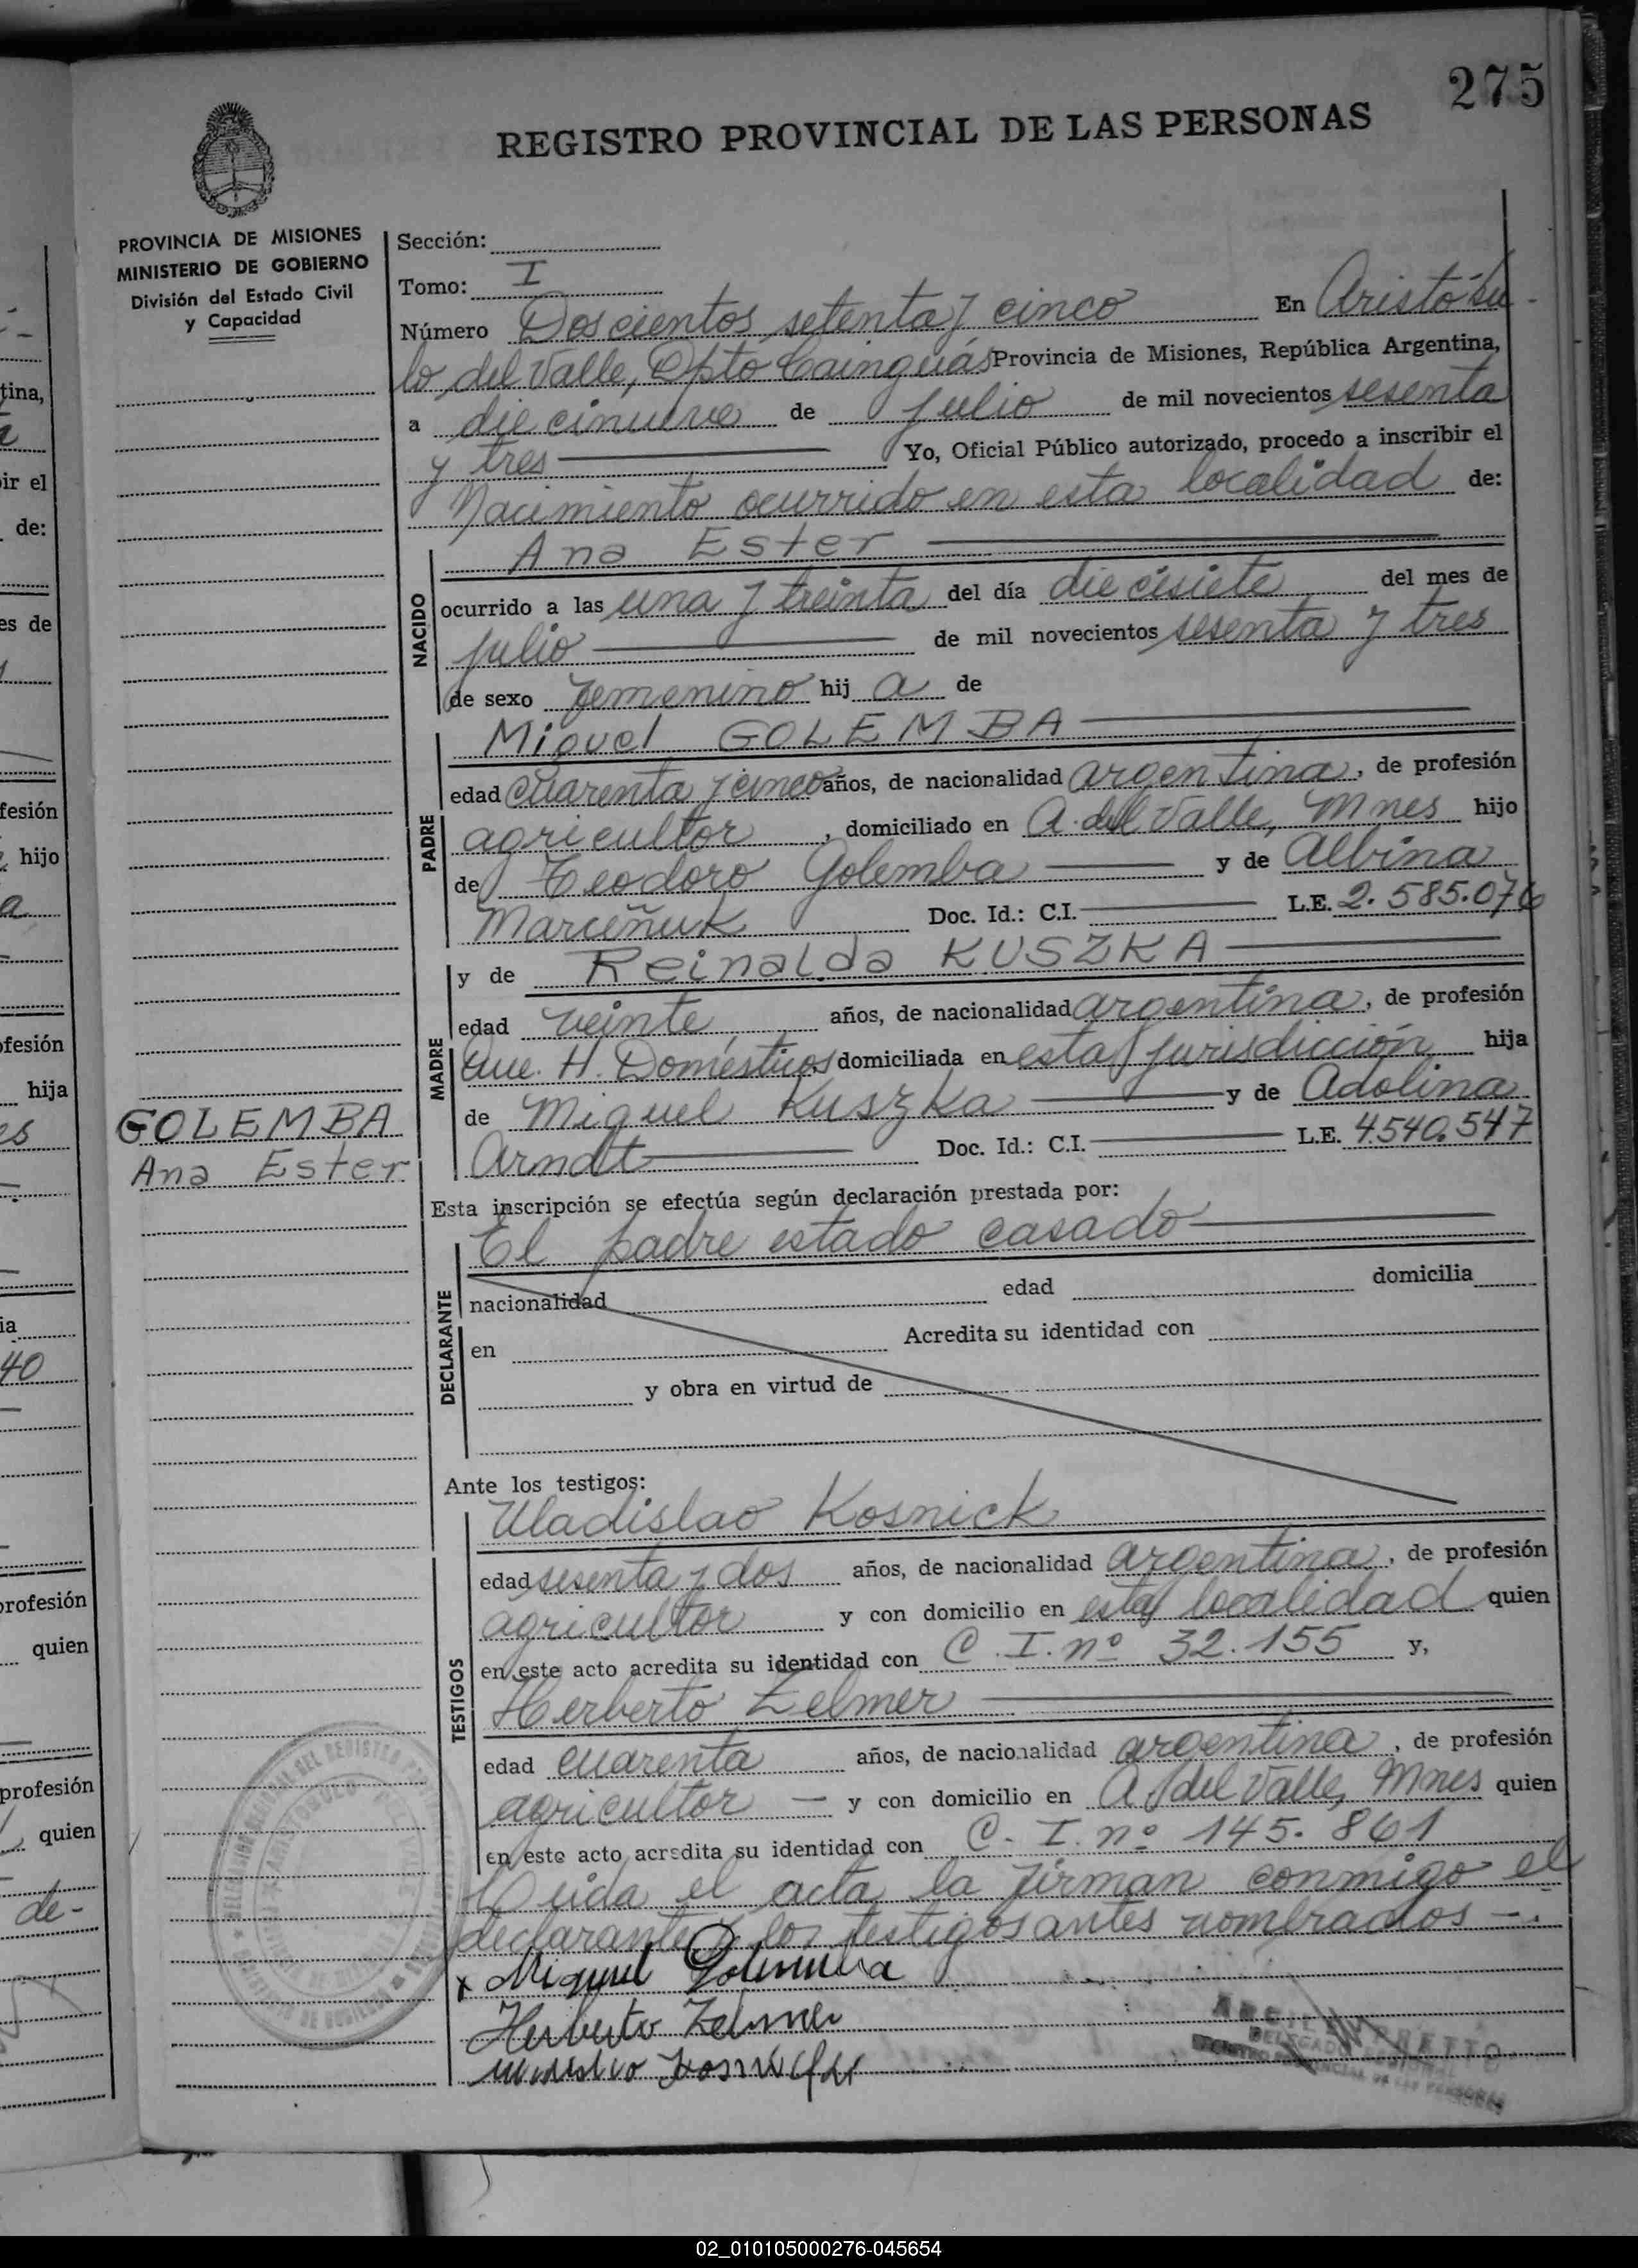 275
REGISTRO PROVINCIAL DE LAS PERSONAS
PROVINCIA DE MISIONES
MINISTERIO DE GOBIERNO
División del Estado Civil
y Capacidad
Sección:
Tomo: I
Número Doscientos setenta y cinco En Aristóbu-
lo del Valle, Dpto Cainguás Provincia de Misiones, República Argentina,
a diecinueve de julio de mil novecientos sesenta
y tres Yo, Oficial Público autorizado, procedo a inscribir el
Nacimiento ocurrido en esta localidad de:
Ana Ester
NACIDO
ocurrido a las una y treinta del día diecisiete del mes de
julio de mil novecientos sesenta y tres
de sexo femenino hij a de
Miguel GOLEMBA
PADRE
edad cuarenta y cinco años, de nacionalidad argentina, de profesión
agricultor, domiciliado en A. del Valle, Mnes hijo
de Teodoro Golemba y de Albina
Marciñuk Doc. Id.: C.I. L.E. 2.585.076
y de Reinalda KUSZKA
MADRE
edad veinte años, de nacionalidad argentina, de profesión
Que. H. Domésticos domiciliada en esta jurisdicción hija
de Miguel Kuszka y de Adolina
Arndt Doc. Id.: C.I. L.E. 4540.547
GOLEMBA
Ana Ester
Esta inscripción se efectúa según declaración prestada por:
El padre estado casado
DECLARANTE
nacionalidad edad domicilia
en Acredita su identidad con
y obra en virtud de
Ante los testigos:
Uladislao Kosnick
TESTIGOS
edad sesenta y dos años, de nacionalidad argentina, de profesión
agricultor y con domicilio en esta localidad quien
en este acto acredita su identidad con C.I. nº 32.155 y,
Herberto Zelmer
edad cuarenta años, de nacionalidad argentina, de profesión
agricultor — y con domicilio en A. del Valle, Mnes quien
en este acto acredita su identidad con C.I. nº 145.861
Leida el acta la firman conmigo el
declarante y los testigos antes nombrados —.
x Miguel Golemba
Herberto Zelmer
02_010105000276-045654